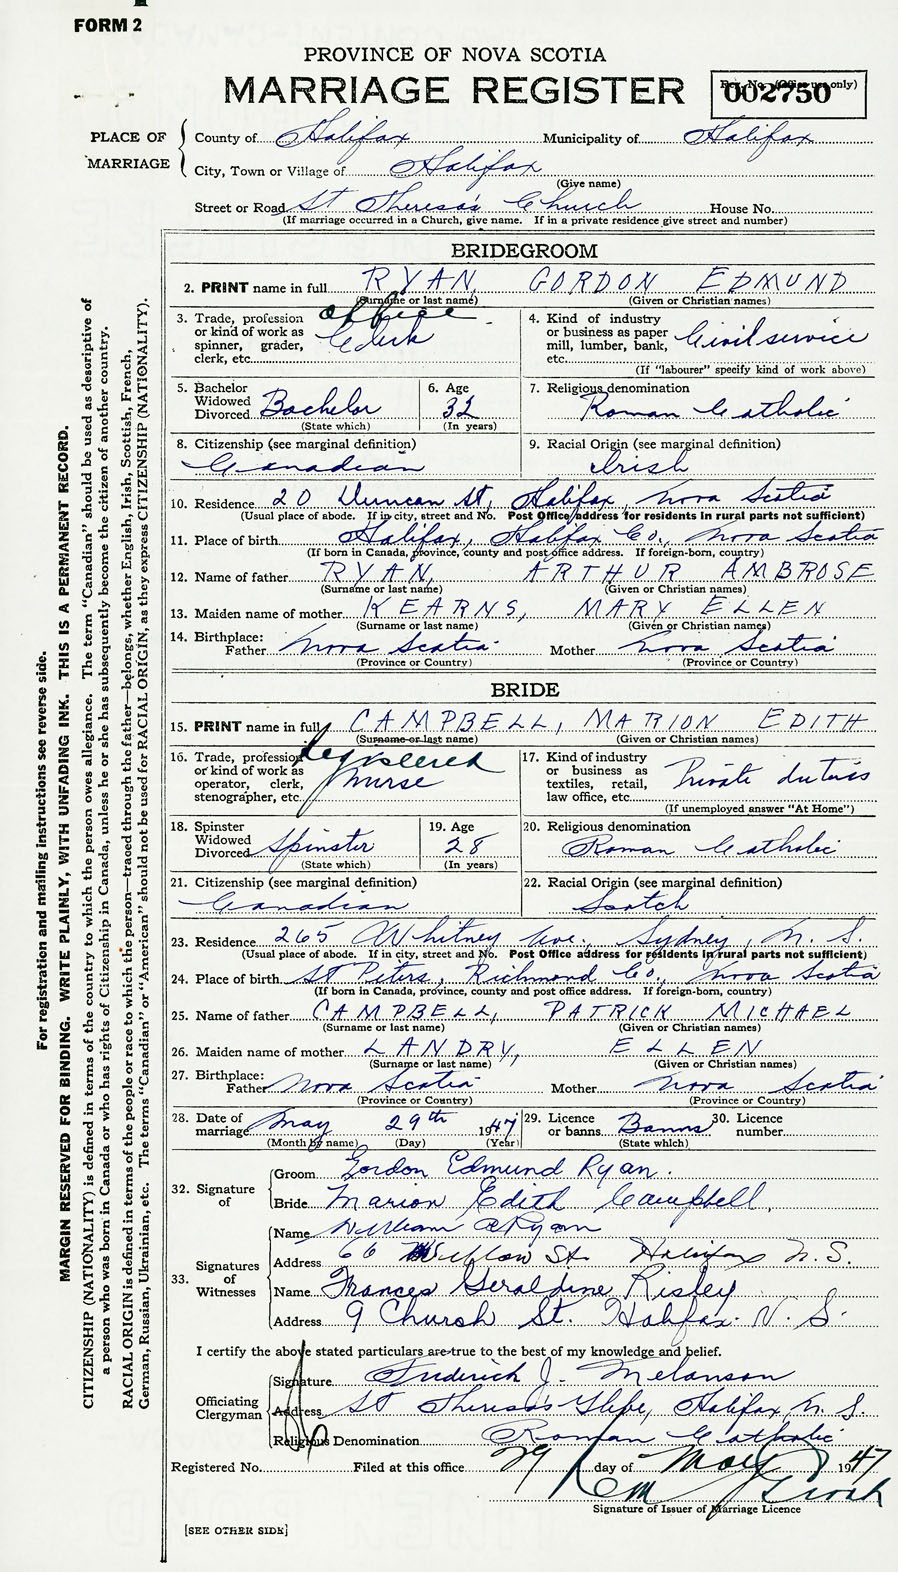 FORM 2
PROVINCE OF NOVA SCOTIA
MARRIAGE REGISTER
002750
PLACE OF MARRIAGE
County of Halifax Municipality of Halifax
City, Town or Village of Halifax
(Give name)
Street or Road St Theresa's Church House No.
(If marriage occurred in a Church, give name. If in a private residence give street and number)
BRIDEGROOM
2. PRINT name in full RYAN, GORDON EDMUND
(Surname or last name) (Given or Christian names)
3. Trade, profession or kind of work as spinner, grader, clerk, etc. office Clerk
4. Kind of industry or business as paper mill, lumber, bank, etc. Civil service
(If "labourer" specify kind of work above)
5. Bachelor Widowed Divorced Bachelor
(State which)
6. Age 32
(In years)
7. Religious denomination Roman Catholic
8. Citizenship (see marginal definition) Canadian
9. Racial Origin (see marginal definition) Irish
10. Residence 20 Duncan St, Halifax, Nova Scotia
(Usual place of abode. If in city, street and No. Post Office address for residents in rural parts not sufficient)
11. Place of birth Halifax, Halifax Co., Nova Scotia
(If born in Canada, province, county and post office address. If foreign-born, country)
12. Name of father RYAN, ARTHUR AMBROSE
(Surname or last name) (Given or Christian names)
13. Maiden name of mother KEARNS, MARY ELLEN
(Surname or last name) (Given or Christian names)
14. Birthplace:
Father Nova Scotia Mother Nova Scotia
(Province or Country) (Province or Country)
BRIDE
15. PRINT name in full CAMPBELL, MARION EDITH
(Surname or last name) (Given or Christian names)
16. Trade, profession or kind of work as operator, clerk, stenographer, etc. registered Nurse
17. Kind of industry or business as textiles, retail, law office, etc. Private duties
(If unemployed answer "At Home")
18. Spinster Widowed Divorced Spinster
(State which)
19. Age 28
(In years)
20. Religious denomination Roman Catholic
21. Citizenship (see marginal definition) Canadian
22. Racial Origin (see marginal definition) Scotch
23. Residence 265 Whitney Ave., Sydney, N. S.
(Usual place of abode. If in city, street and No. Post Office address for residents in rural parts not sufficient)
24. Place of birth St Peters, Richmond Co., Nova Scotia
(If born in Canada, province, county and post office address. If foreign-born, country)
25. Name of father CAMPBELL, PATRICK MICHAEL
(Surname or last name) (Given or Christian names)
26. Maiden name of mother LANDRY, ELLEN
(Surname or last name) (Given or Christian names)
27. Birthplace:
Father Nova Scotia Mother Nova Scotia
(Province or Country) (Province or Country)
28. Date of marriage May 29th 1947
(Month by name) (Day) (Year)
29. Licence or banns Banns
(State which)
30. Licence number
32. Signature of
Groom Gordon Edmund Ryan.
Bride Marion Edith Campbell,
33. Signatures of Witnesses
Name William Ryan
Address 66 Willow St. Halifax N.S.
Name Frances Geraldine Risley
Address 9 Church St. Halifax. N. S.
I certify the above stated particulars are true to the best of my knowledge and belief.
Officiating Clergyman
Signature Frederick J. Melanson
Address St Theresa's Glebe, Halifax, N. S.
Religious Denomination Roman Catholic
Registered No. Filed at this office 29 day of May 1947
Signature of Issuer of Marriage Licence
[SEE OTHER SIDE]
For registration and mailing instructions see reverse side.
MARGIN RESERVED FOR BINDING. WRITE PLAINLY, WITH UNFADING INK. THIS IS A PERMANENT RECORD.
CITIZENSHIP (NATIONALITY) is defined in terms of the country to which the person owes allegiance. The term "Canadian" should be used as descriptive of
a person who was born in Canada or who has rights of Citizenship in Canada, unless he or she has subsequently become the citizen of another country.
RACIAL ORIGIN is defined in terms of the people or race to which the person—traced through the father—belongs, whether English, Irish, Scottish, French,
German, Russian, Ukrainian, etc. The terms "Canadian" or "American" should not be used for RACIAL ORIGIN, as they express CITIZENSHIP (NATIONALITY).